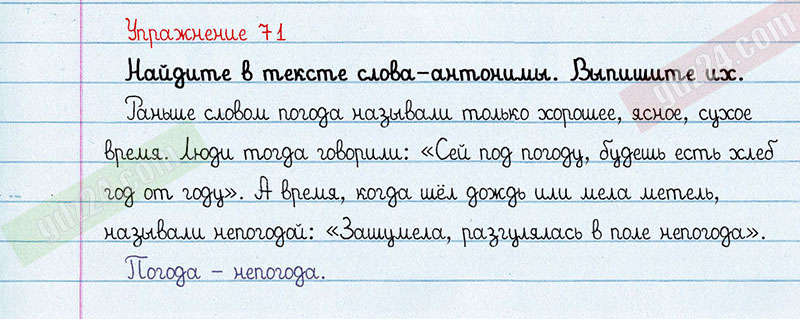 Упражнение 71
Найдите в тексте слова-антонимы. Выпишите их.
Раньше словом погода называли только хорошее, ясное, сухое
время. Люди тогда говорили: «Сей под погоду, будешь есть хлеб
год от году». А время, когда шёл дождь или мела метель,
называли непогодой: «Зашумела, разгулялась в поле непогода».
Погода – непогода.
gdz24.com
gdz24.com